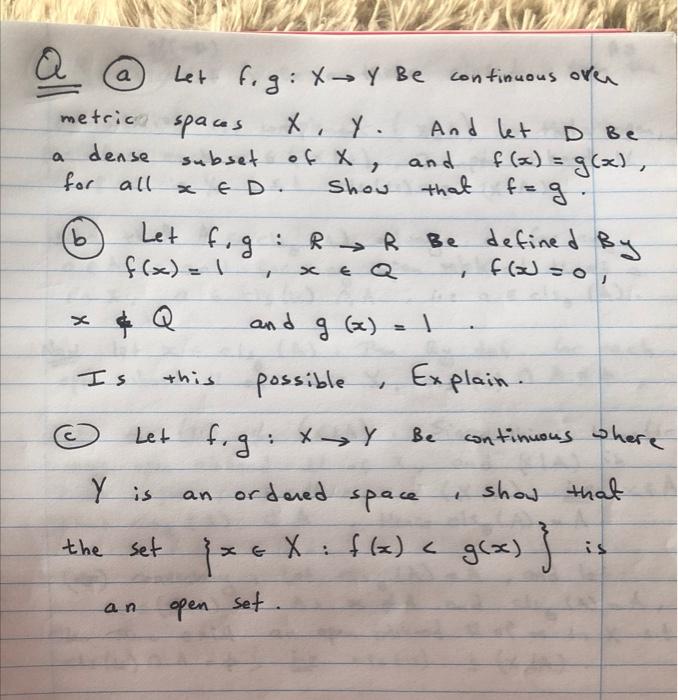 Q (a) Let f, g : X → Y Be continuous over
metric spaces X, Y. And let D Be
a dense subset of X, and f(x) = g(x),
for all x ∈ D. Show that f = g.
(b) Let f, g : R → R Be defined By
f(x) = 1, x ∈ Q, f(x) = 0,
x ∉ Q and g(x) = 1.
Is this possible, Explain.
(c) Let f, g : X → Y Be continuous where
Y is an ordered space, show that
the set {x ∈ X : f(x) < g(x)} is
an open set.